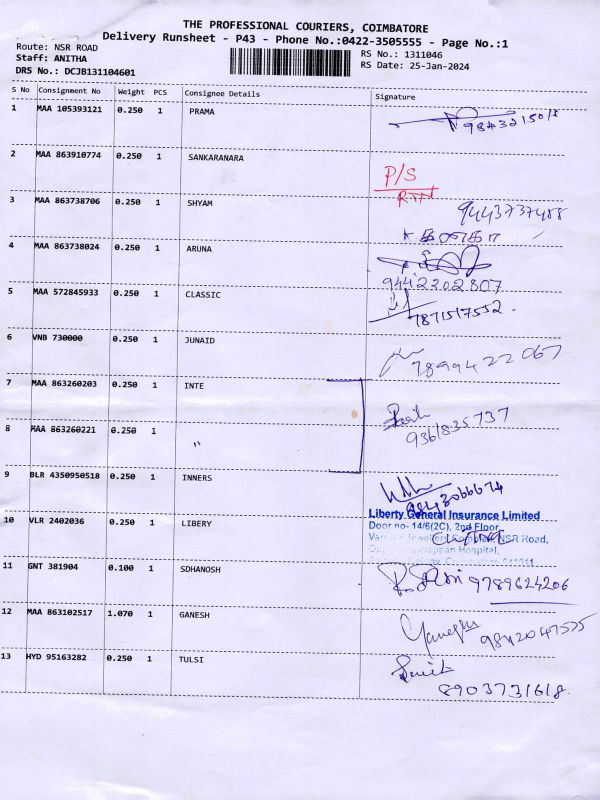 THE PROFESSIONAL COURIERS, COIMBATORE
Delivery Runsheet - P43 - Phone No.:0422-3505555 - Page No.:1
Route: NSR ROAD
Staff: ANITHA
DRS No.: DCJB131104601
RS No.: 1311046
RS Date: 25-Jan-2024
S No Consignment No Weight PCS Consignee Details Signature
1 MAA 105393121 0.250 1 PRAMA
2 MAA 863910774 0.250 1 SANKARANARA
P/S
RTN
3 MAA 863738706 0.250 1 SHYAM
9443737488
4 MAA 863738024 0.250 1 ARUNA
9442202807
5 MAA 572845933 0.250 1 CLASSIC
7871517552.
6 VNB 730000 0.250 1 JUNAID
7899422067
7 MAA 863260203 0.250 1 INTE
8 MAA 863260221 0.250 1 "
9361835737
9 BLR 4350950518 0.250 1 INNERS
9843066674
10 VLR 2402036 0.250 1 LIBERY
Liberty General Insurance Limited
Door no- 14/6(2C), 2nd Floor,
NSR Road,
Hospital,
11 GNT 381904 0.100 1 SDHANOSH
9789624206
12 MAA 863102517 1.070 1 GANESH
Ganesh
9842047555
13 HYD 95163282 0.250 1 TULSI
8903731618